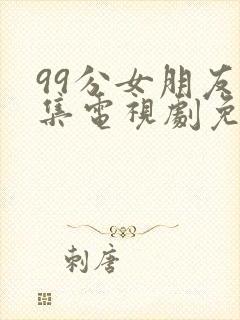 99分女朋友
集電視劇免
刺唐